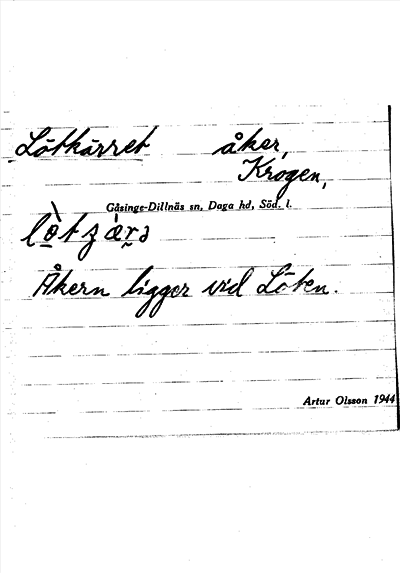 Lötkärret åker,
Krogen,
Gåsinge-Dillnäs sn, Daga hd, Söd. l.
Åkern ligger vid Löten.
Artur Olsson 1944